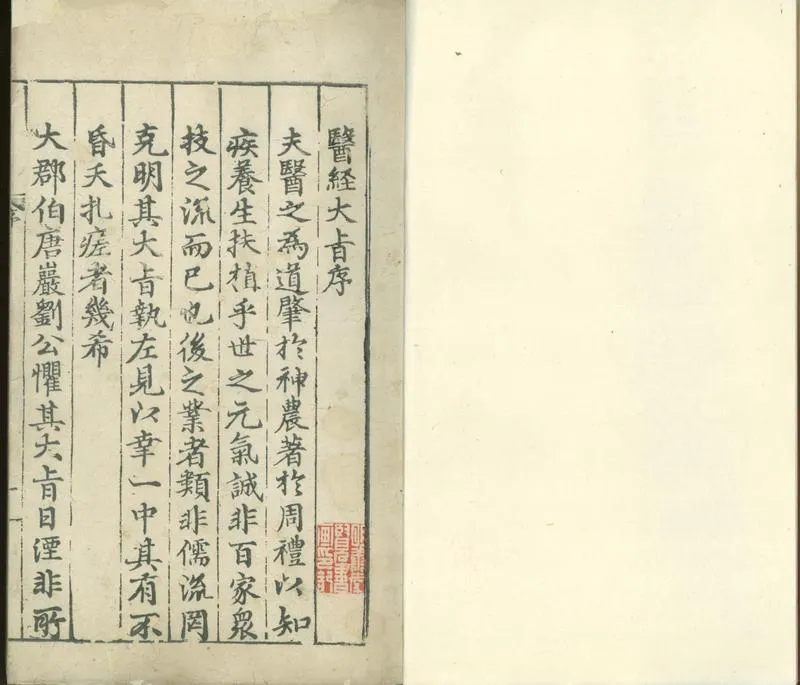 醫経大㫖序
夫醫之為道肇於神農著於周禮以知
疾養生扶植乎世之元氣誠非百家衆
技之流而已也後之業者類非儒流罔
克明其大㫖執左見以幸一中其有不
昏夭札瘥者幾希
大郡伯唐巖劉公懼其大㫖日湮非所